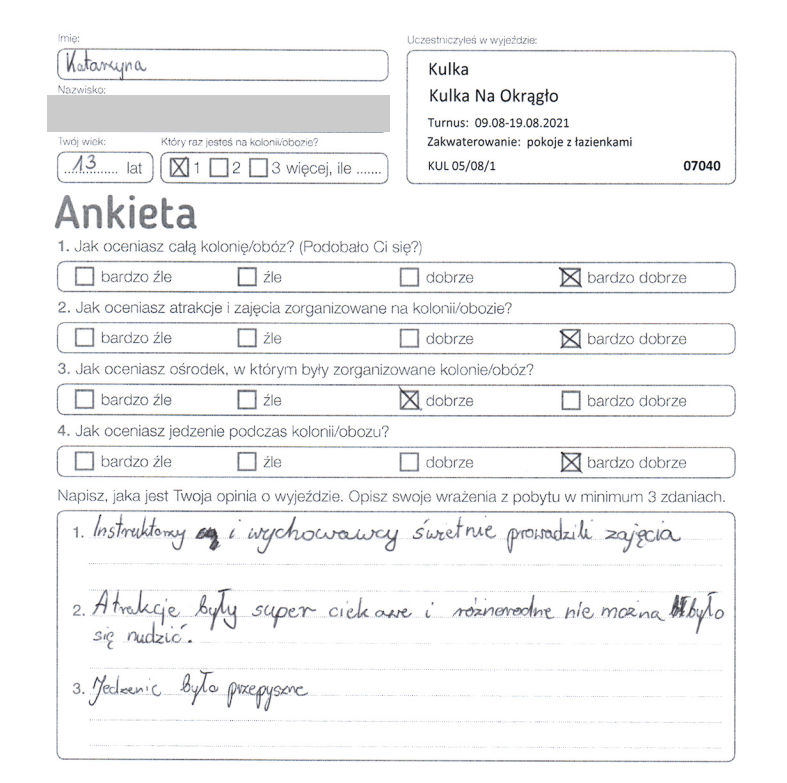 Imię:
Katarzyna
Nazwisko:
Twój wiek:
13 lat
Który raz jesteś na kolonii/obozie?
1 2 3 więcej, ile .......
Uczestniczyłeś w wyjeździe:
Kulka
Kulka Na Okrągło
Turnus: 09.08-19.08.2021
Zakwaterowanie: pokoje z łazienkami
KUL 05/08/1 07040
Ankieta
1. Jak oceniasz całą kolonię/obóz? (Podobało Ci się?)
bardzo źle źle dobrze bardzo dobrze
2. Jak oceniasz atrakcje i zajęcia zorganizowane na kolonii/obozie?
bardzo źle źle dobrze bardzo dobrze
3. Jak oceniasz ośrodek, w którym były zorganizowane kolonie/obóz?
bardzo źle źle dobrze bardzo dobrze
4. Jak oceniasz jedzenie podczas kolonii/obozu?
bardzo źle źle dobrze bardzo dobrze
Napisz, jaka jest Twoja opinia o wyjeździe. Opisz swoje wrażenia z pobytu w minimum 3 zdaniach.
1. Instruktorzy i wychowawcy świetnie prowadzili zajęcia
2. Atrakcje były super ciekawe i różnorodne nie można było
się nudzić.
3. Jedzenie było przepyszne